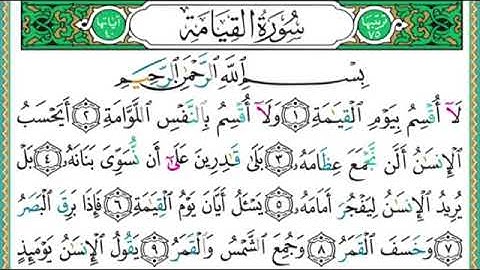 ترتيبها ٧٥ سُورَةُ الْقِيَامَةِ آياتها ٤٠
بِسْمِ ٱللَّهِ ٱلرَّحْمَٰنِ ٱلرَّحِيمِ
لَآ أُقْسِمُ بِيَوْمِ ٱلْقِيَٰمَةِ ١ وَلَآ أُقْسِمُ بِٱلنَّفْسِ ٱللَّوَّامَةِ ٢ أَيَحْسَبُ
ٱلْإِنسَٰنُ أَلَّن نَّجْمَعَ عِظَامَهُۥ ٣ بَلَىٰ قَٰدِرِينَ عَلَىٰٓ أَن نُّسَوِّىَ بَنَانَهُۥ ٤ بَلْ
يُرِيدُ ٱلْإِنسَٰنُ لِيَفْجُرَ أَمَامَهُۥ ٥ يَسْـَٔلُ أَيَّانَ يَوْمُ ٱلْقِيَٰمَةِ ٦ فَإِذَا بَرِقَ ٱلْبَصَرُ
٧ وَخَسَفَ ٱلْقَمَرُ ٨ وَجُمِعَ ٱلشَّمْسُ وَٱلْقَمَرُ ٩ يَقُولُ ٱلْإِنسَٰنُ يَوْمَئِذٍ